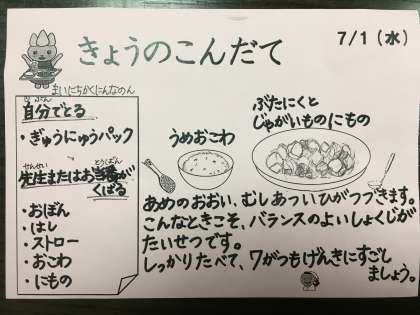 きょうのこんだて
7/1(水)
まいにちかくにんなのん
じぶん
自分でとる
・ぎゅうにゅうパック
せんせい とうばん
先生またはお当番が
くばる
・おぼん
・はし
・ストロー
・おこわ
・にもの
うめおこわ
ぶたにくと
じゃがいものにもの
あめのおおい、むしあついひがつづきます。
こんなときこそ、バランスのよいしょくじが
たいせつです。
しっかりたべて、7がつもげんきにすごし
ましょう。